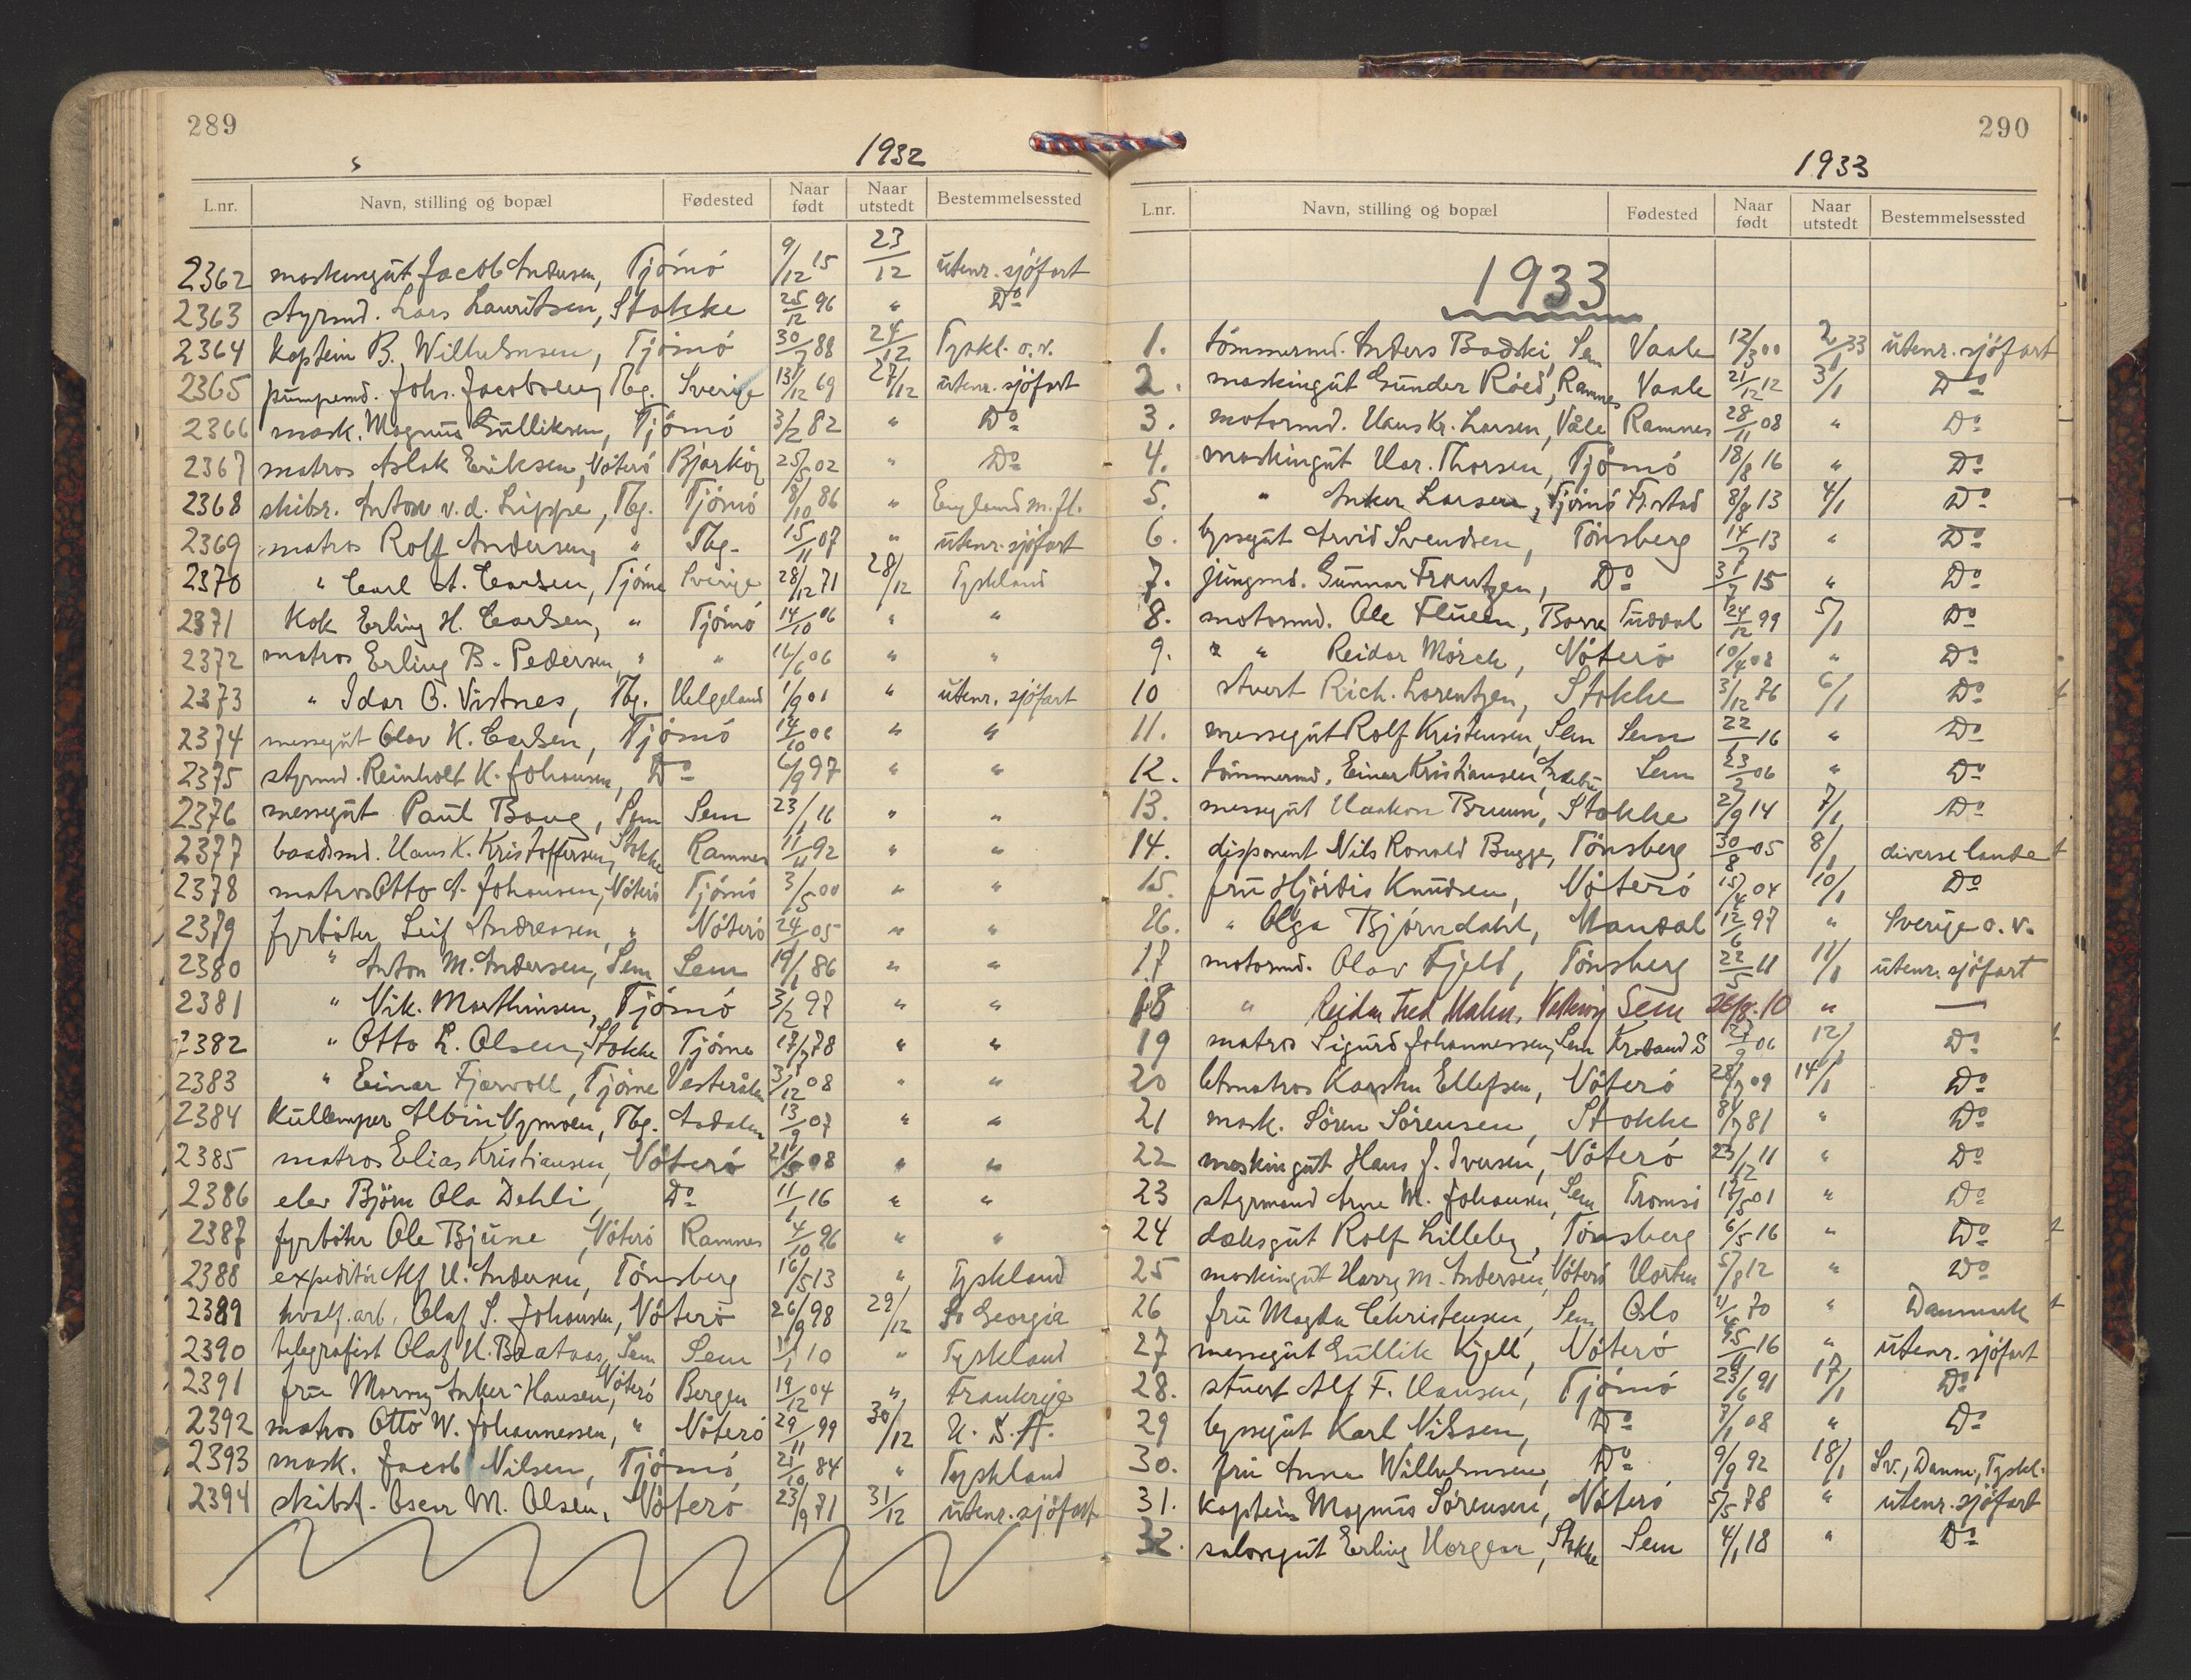 289
1932
L.nr. Navn, stilling og bopæl Fødested Naar født Naar utstedt Bestemmelsessted
2362 maskingut Jacob Andersen, Tjömö 9/12 15 23/12 utenr. sjöfart
2363 styrmd. Lars Lauritsen, Stokke 25/12 96 " Do
2364 Kaptein B. Wilhelmsen, Tjömö 30/7 88 24/12 Tyskl. o.v.
2365 pumpemd. Johs. Jacobsen, Tbg. Sverige 13/12 69 27/12 utenr. sjöfart
2366 mask. Magnus Gulliksen, Tjömö 3/2 82 " Do
2367 matros Aslak Eriksen, Nöterö Bjarköy 25/5 02 " Do
2368 skibsr. Anton v.d. Lippe, Tbg. Tjömö 8/10 86 " England m.fl.
2369 matros Rolf Andersen, " Tbg. 15/11 07 " utenr. sjöfart
2370 " Carl A. Carlsen, Tjöme Sverige 28/12 71 28/12 Tyskland
2371 Kok Erling H. Carlsen, " Tjömö 14/10 06 " "
2372 matros Erling B. Pedersen, " " 16/6 06 " "
2373 " Idar O. Vistnes, Tbg. Helgeland 1/9 01 " utenr. sjöfart
2374 messegut Olav K. Carlsen, Tjömö 14/10 06 " "
2375 styrmd. Reinholt K. Johansen, Do 6/9 97 " "
2376 messegut Paul Boug, Sem Sem 23/1 16 " "
2377 baadsmd. Hans K. Kristoffersen, Stokke Ramnes 11/11 92 " "
2378 matros Otto A. Johansen, Nöterö Tjömö 3/5 00 " "
2379 fyrböter Leif Andreassen, " Nöterö 24/4 05 " "
2380 " Anton M. Andersen, Sem Sem 19/1 86 " "
2381 " Nik. Marthinsen, Tjömö 3/2 97 " "
2382 " Otto L. Olsen, Stokke Tjöme 17/7 78 " "
2383 " Einar Fjærvoll, Tjöme Vesterålen 31/12 08 " "
2384 Kullemper Albin Nymoen, Tbg. Aadalen 13/9 07 " "
2385 matros Elias Kristiansen, Nöterö 21/5 08 " "
2386 elev Björn Ola Dehli, Do 11/1 16 " "
2387 fyrböter Ole Bjune, Nöterö Ramnes 4/10 96 " "
2388 expeditör Alf H. Andersen, Tönsberg 16/5 13 " Tyskland
2389 hvalf. arb. Olaf S. Johansen, Nöterö 26/9 98 29/12 So Georgia
2390 telegrafist Olaf H. Braataas, Sem Sem 1/1 10 " Tyskland
2391 fru Marny Anker-Hansen, Nöterö Bergen 19/12 04 " Frankrige
2392 matros Otto W. Johannessen, " Nöterö 29/11 99 30/12 U.S.A.
2393 mask. Jacob Nilsen, Tjömö 21/10 84 " Tyskland
2394 skibsf. Oscar M. Olsen, Nöterö 23/9 71 31/12 utenr. sjöfart
290
1933
L.nr. Navn, stilling og bopæl Fødested Naar født Naar utstedt Bestemmelsessted
1933
1. tömmermd. Anders Badski, Sem Vaale 12/3 00 2/1 33 utenr. sjöfart
2. maskingut Gunder Röed, Ramnes Vaale 21/12 12 3/1 Do
3. motormd. Hans Kr. Larsen, Våle Ramnes 28/11 08 " Do
4. maskingut Har. Thorsen, Tjömö 18/8 16 " Do
5. " Anker Larsen, Tjömö Fr.stad 8/8 13 4/1 Do
6. byssegut Arvid Svendsen, Tönsberg 14/7 13 " Do
7. jungmd. Gunnar Frantzen, Do 3/7 15 " Do
8. motormd. Ole Flueen, Borre Tuddal 24/12 99 5/1 Do
9. " " Reidar Mörch, Nöterö 10/4 08 " Do
10 stuert Rich. Lorentzen, Stokke 3/12 76 6/1 Do
11. messegut Rolf Kristensen, Sem Sem 22/1 16 " Do
12. tömmermd. Einar Kristiansen, Sem 23/2 06 " Do
13. messegut Haakon Bruun, Stokke 2/9 14 7/1 Do
14. disponent Nils Ronald Bugge, Tönsberg 30/8 05 8/1 diverse lande
15. fru Hjördis Knudsen, Nöterö 15/4 04 10/1 Do
16. " Olga Bjørndahl, Mandal 12/6 97 " Sverige o.v.
17 motormd. Olav Fjeld, Tönsberg 22/5 11 11/1 utenr. sjöfart
18 " Reidar Fred Malm, Sem 26/8 10 " —
19 matros Sigurd Johannessen, Sem Kr.sand S 27/9 06 12/1 Do
20 letmatros Karsten Ellefsen, Nöterö 28/7 09 14/1 Do
21 mask. Sören Sörensen, Stokke 8/7 81 " Do
22 maskingut Hans J. Iversen, Nöterö 23/12 11 " Do
23 styrmand Arne M. Johansen, Sem Tromsö 12/5 01 " Do
24 dæksgut Rolf Lilleby, Tönsberg 6/5 16 " Do
25 maskingut Harry M. Andersen, Nöterö Horten 5/8 12 " Do
26 fru Magda Christensen, Sem Oslo 11/4 70 " Danmark
27 messegut Gullik Kjell, Nöterö 15/11 16 " utenr. sjöfart
28. stuert Alf F. Hansen, Tjömö 23/6 91 17/1 Do
29 byssegut Karl Nilssen, Do 7/1 08 " Do
30. fru Anna Wilhelmsen, Do 9/9 92 18/1 Sv., Danm., Tyskl.
31. Kaptein Magnus Sörensen, Nöterö 5/5 78 " utenr. sjöfart
32. salongut Erling Horgen, Stokke Sem 4/1 18 " Do